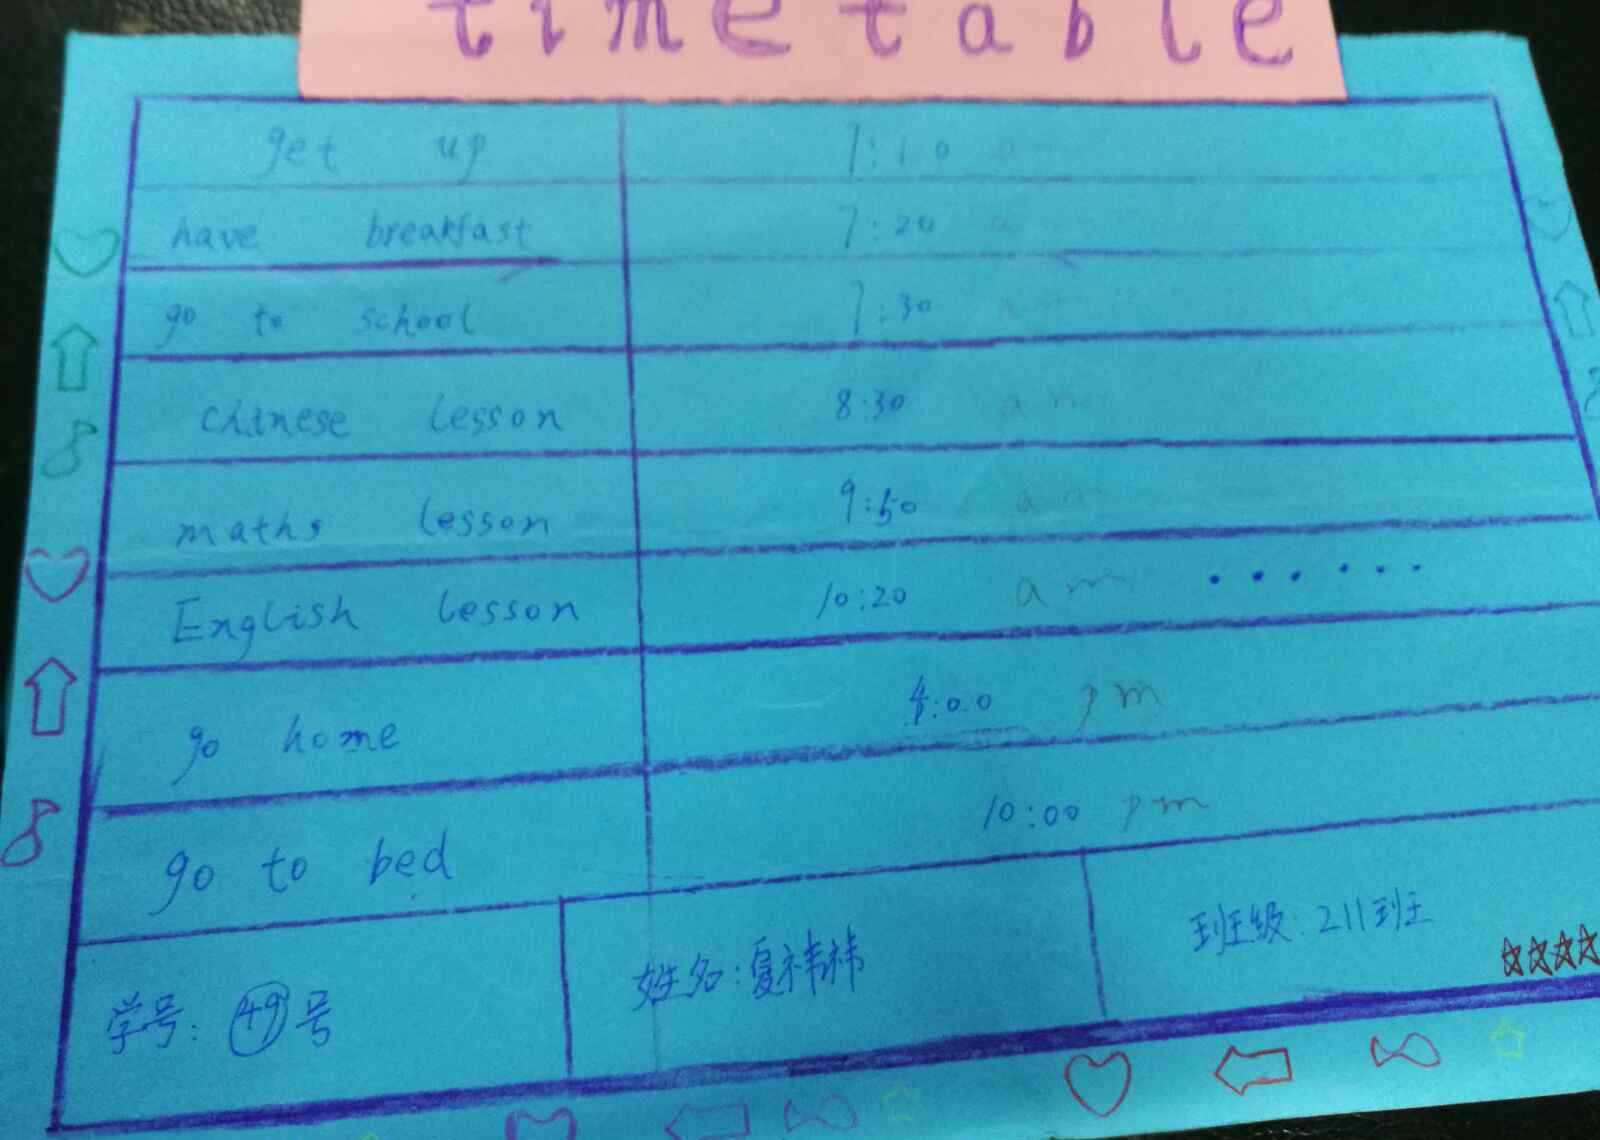 timetable
get up 7:10 am
have breakfast 7:20 a
go to school 7:30 am
Chinese lesson 8:30 am
maths lesson 9:50 am
English lesson 10:20 am ······
go home 4:00 pm
go to bed 10:00 pm
学号: 49号 姓名: 夏祎祎 班级: 211班